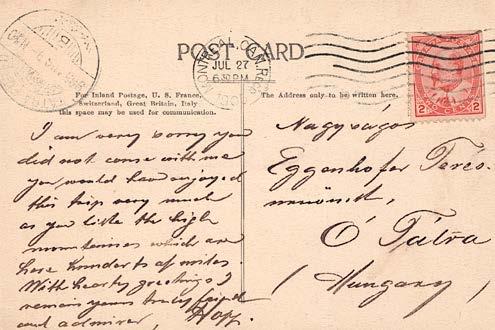 POST CARD
MONTREAL, CAN.
JUL 27
6 30 PM
For Inland Postage, U. S. France,
Switzerland, Great Britain, Italy
this space may be used for communication.
The Address only to be written here.
2 2
I am very sorry you
did not come with me
you would have enjoyed
this trip very much
as you like the high
mountaines which are
here hunderts of miles.
With hearty greetings I
remain yours truly frind
and admirer, Hopp.
Nagyságos
Eggenhofer Teréz
úrnőnek,
Ó Tátra
(Hungary)